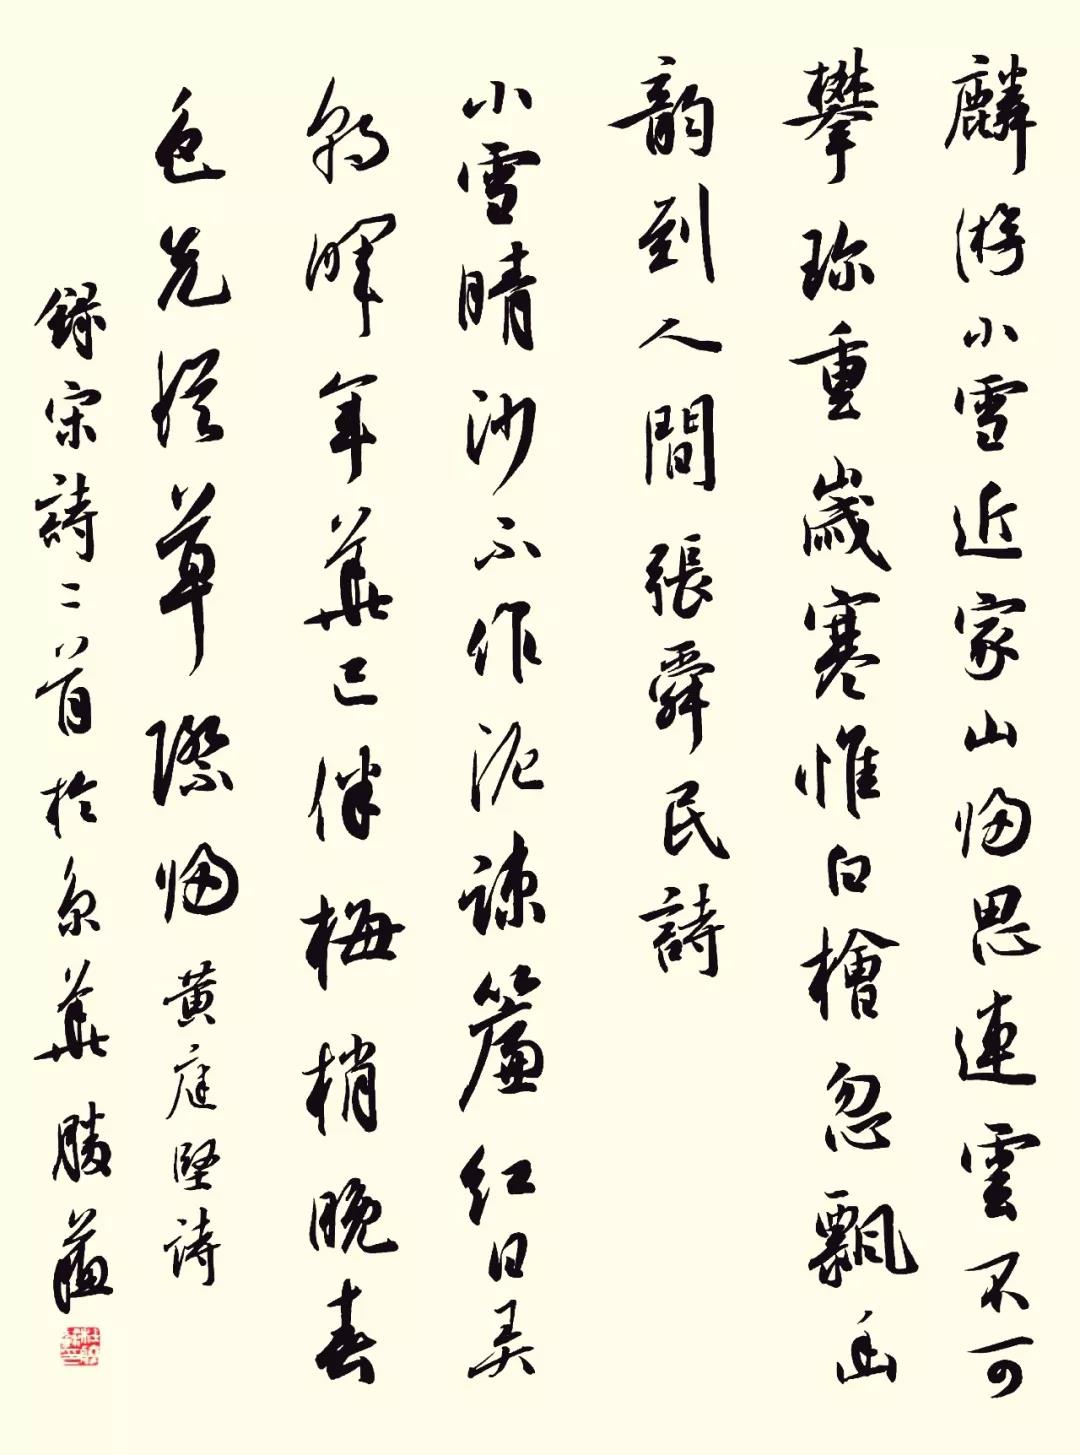 麟游小雪近家山歸思連雲不可
攀珍重歲寒惟白檜忽飄幽
韵到人間張舜民詩
小雪晴沙不作泥疎簾红日弄
朝暉年華已伴梅梢晚春
色先從草際歸黄庭堅詩
録宋詩二首於京華勝